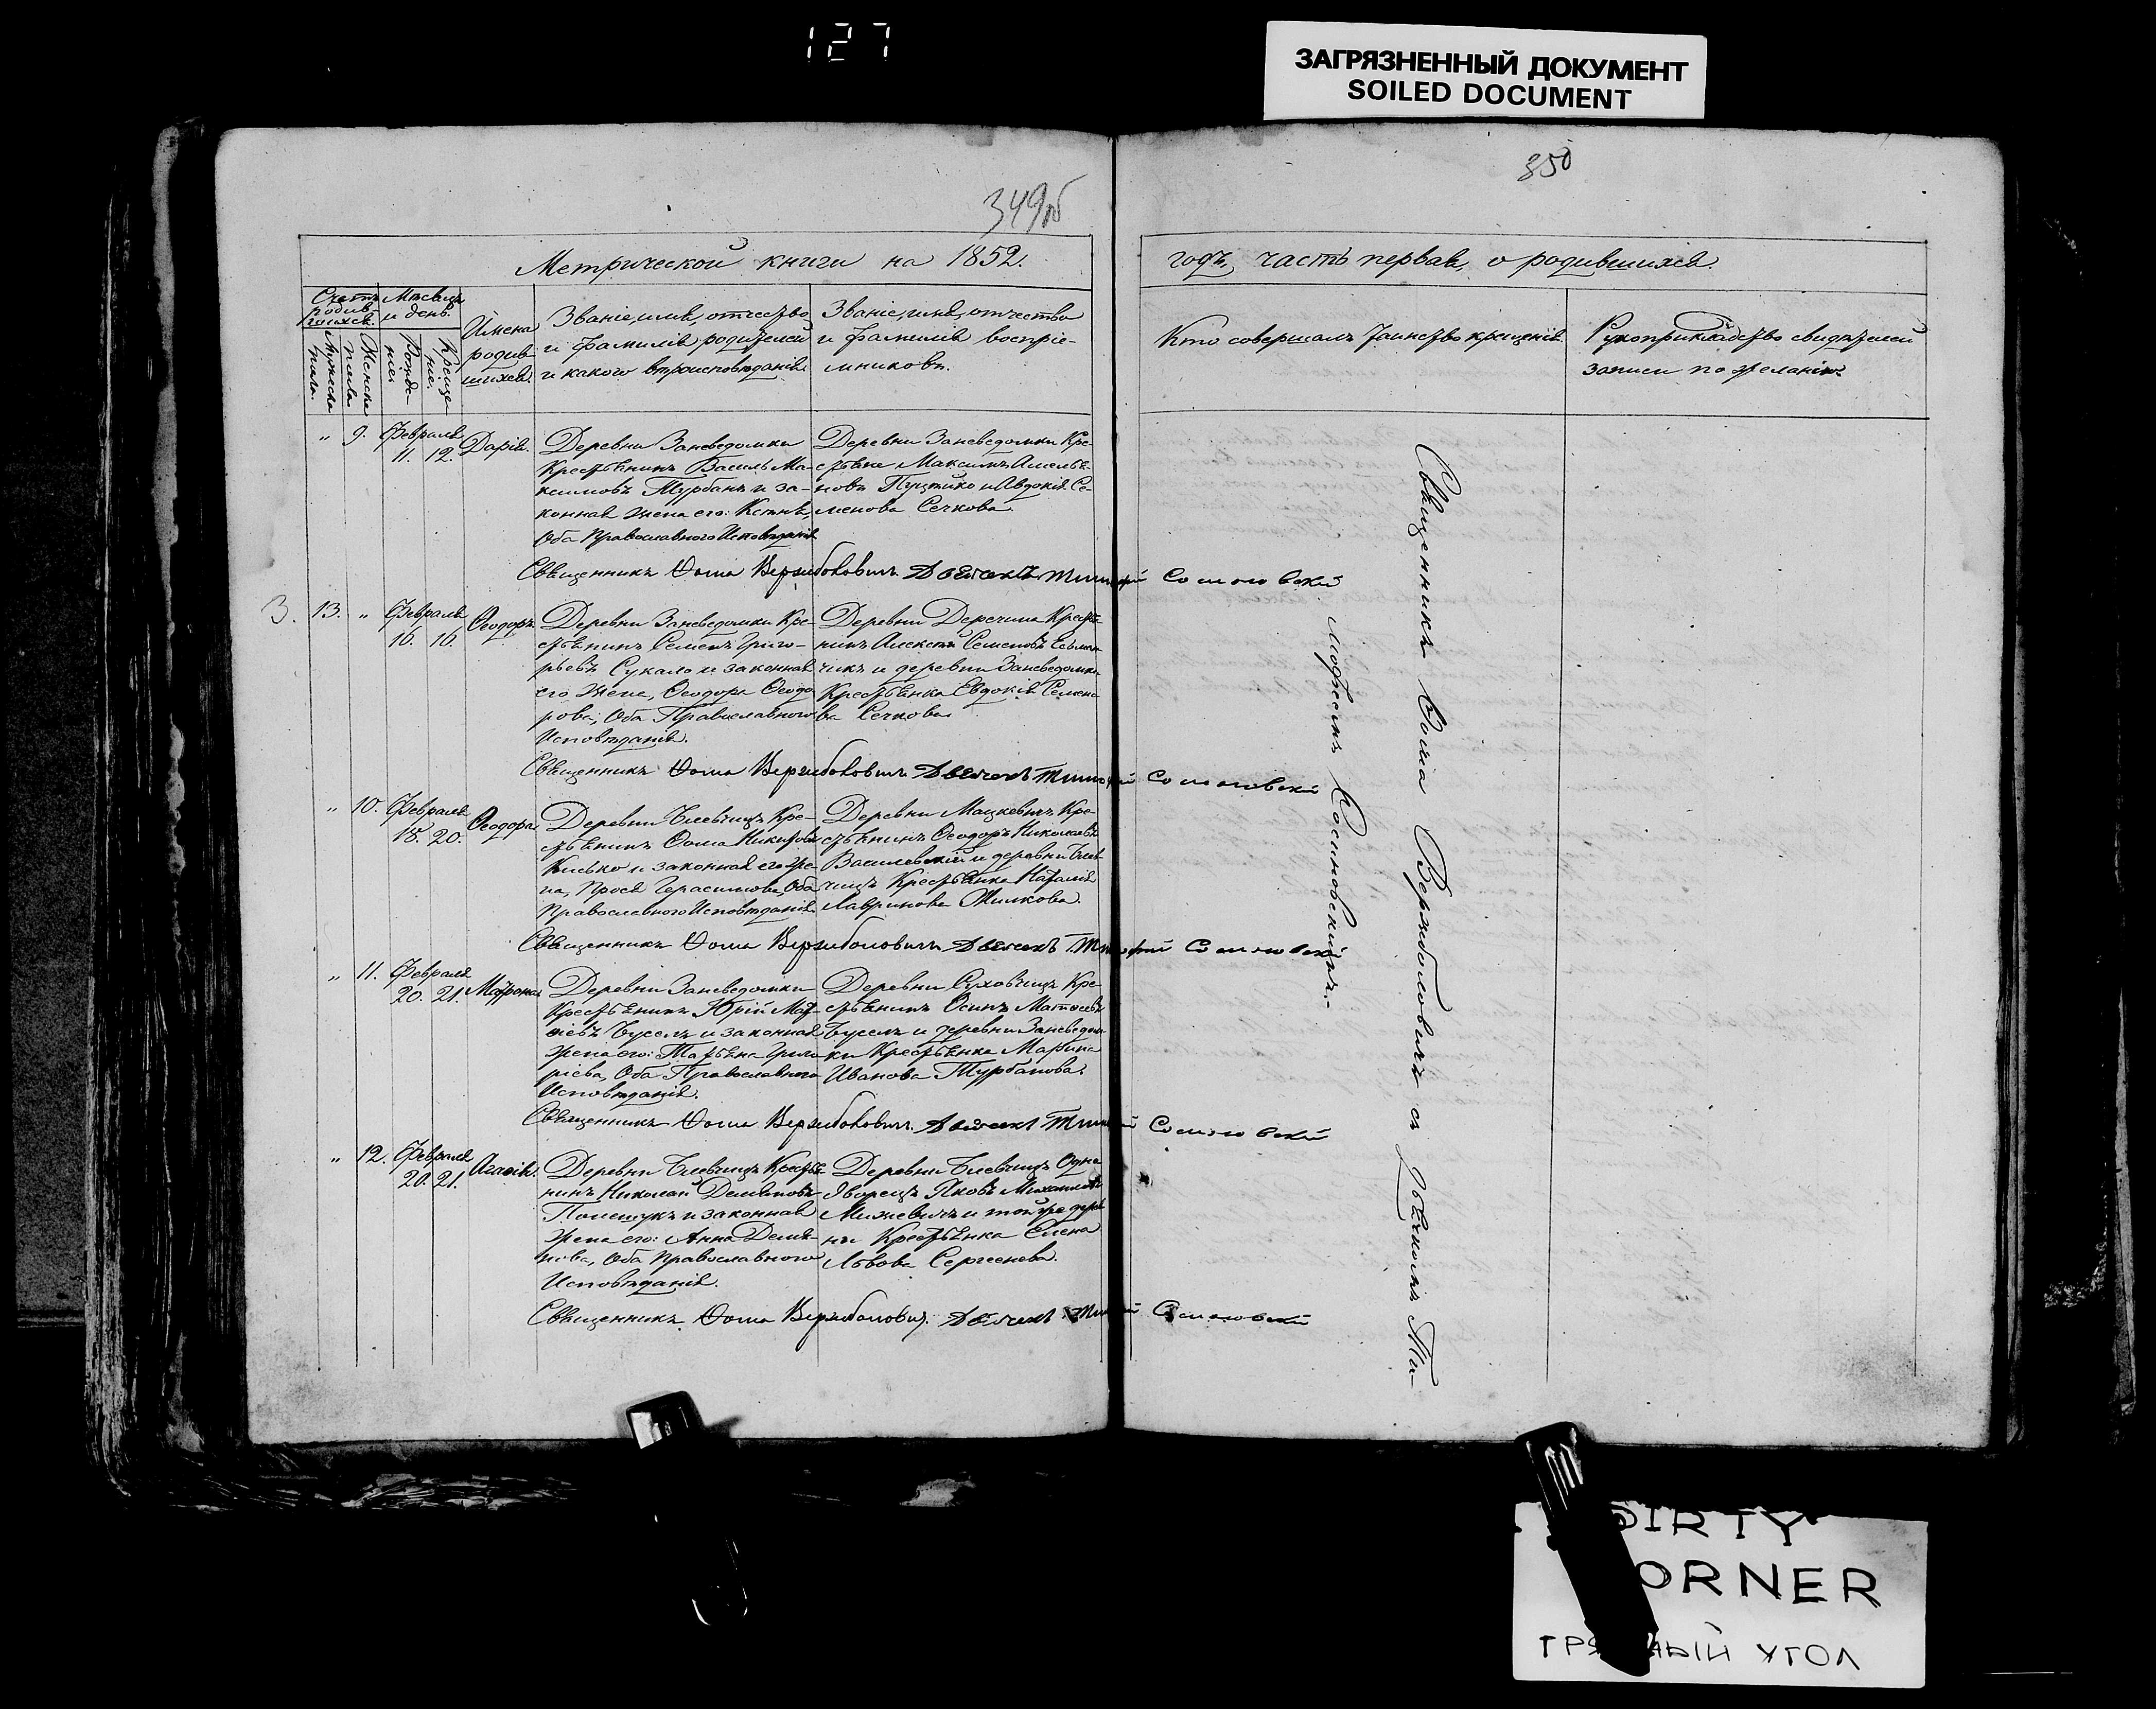 127
ЗАГРЯЗНЕННЫЙ ДОКУМЕНТ
SOILED DOCUMENT
349об
350
Метрической книги на 1852.
годъ, часть первая, о родившихся.
Счетъ родив-шихся.
Мужеска пола.
Женска пола.
Мѣсяцъ и день.
Рожде-нія
Креще-нія.
Имена
родив-
шихся.
Званіе, имя, отчество
и фамилія родителей
и какого вѣроисповѣданія.
Званіе, имя, отчество
и фамилія воспріе-
мниковъ.
Кто совершалъ таинство крещенія.
Рукоприкладство свидѣтелей
записи по желанію.
„ 9. Февраля
11. 12.
Дарія.
Деревни Заневедомки
Крестьянинъ Василь Ма-
ксимовъ Турбанъ и за-
конная жена его:
Оба Православного Исповѣданія
Деревни Заневедомки Кре-
стьяне Максимъ
и Авдокія Се-
менова Сечкова.
Священникъ Ѳома Вержболовичъ Дьячекъ Тимофей Сосиновскій
3. 13. „ Февраля
16. 16.
Ѳеодоръ.
Деревни Заневедомки Кре-
стьянинъ Семенъ Григо-
рьевъ Сукало и законная
его жена, Ѳеодора Ѳеодо-
рова, Оба Православного
Исповѣданія.
Деревни Деречина Крестья-
нинъ Алексѣй Семеновъ
и деревни Заневедомки
Крестьянка Евдокія Семено-
ва Сечкова
Священникъ Ѳома Вержболовичъ Дьячекъ Тимофей Сосиновскій
„ 10. Февраля
18. 20.
Ѳеодора
Деревни Кре-
стьянинъ Ѳома Никитовъ
и законная его же-
на, Герасимова, Оба
Православного Исповѣданія
Деревни Мацкевичъ Кре-
стьянинъ Ѳеодоръ Николаевъ
Василевскій и деревни
Крестьянка Наталія
Лавринова Жилкова.
Священникъ Ѳома Вержболовичъ Дьячекъ Тимофей Сосиновскій
„ 11. Февраля
20. 21.
Матрона
Деревни Заневедомки
Крестьянинъ Юрій Мат-
ѳіевъ Бусель и законная
жена его: Татьяна Григо-
ріева, Оба Православного
Исповѣданія.
Деревни Суховчицъ Кре-
стьянинъ Осипъ Матѳеевъ
Бусель и деревни Заневедом-
ки Крестьянка Марина
Иванова Турбанова.
Священникъ Ѳома Вержболовичъ Дьячекъ Тимофей Сосиновскій
„ 12. Февраля
20. 21.
Агаѳія.
Деревни Крестья-
нинъ Николай Демьяновъ
Полещукъ и законная
жена его: Анна Демья-
нова, Оба Православного
Исповѣданія.
Деревни Одно-
дворецъ Яковъ Михайловъ
и той же дерев-
ни Крестьянка Елена
Львова Сергеенова.
Священникъ Ѳома Вержболовичъ Дьячекъ Тимофей Сосиновскій
Священникъ Ѳома Вержболовичъ съ Дьячкомъ Ти-
мофеемъ Сосиновскимъ.
DIRTY
ORNER
УГОЛ